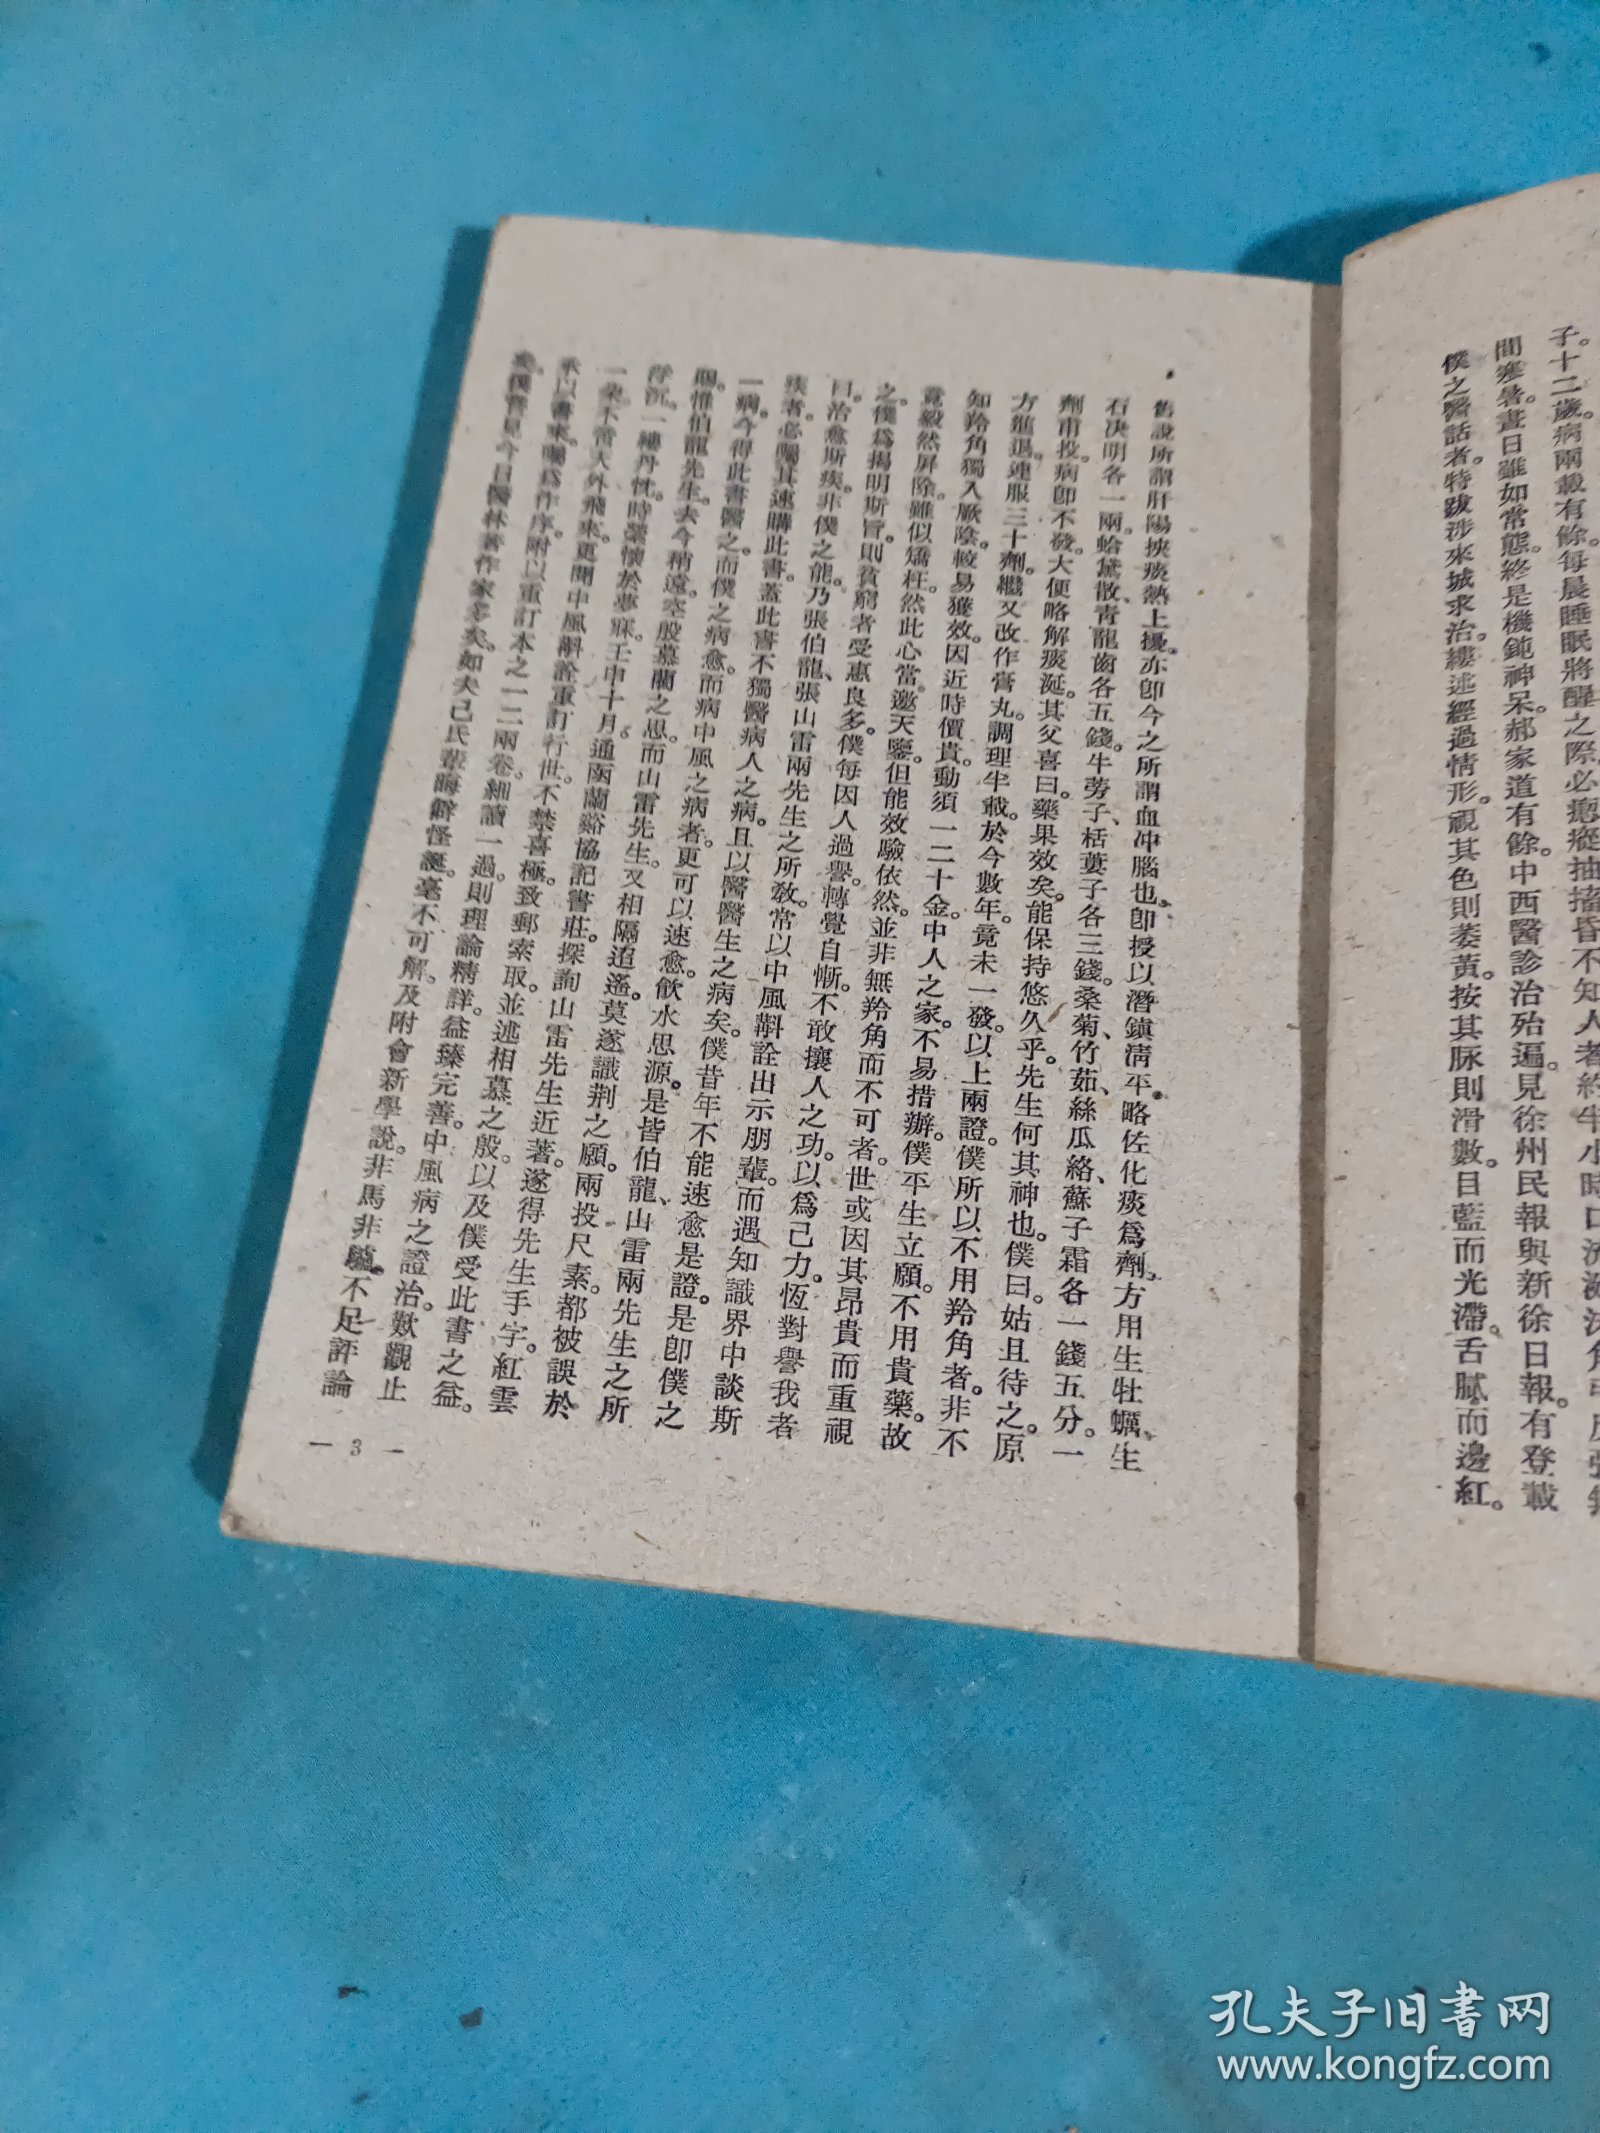 子。十二歲。病兩載有餘。每晨睡眠將醒之際。必瘛瘲抽搐。昏不知人者。約半小時。口流涎沫。角弓反張。
間寒暑。晝日雖如常態。終是機鈍神呆。郝家道有餘。中西醫診治殆遍。見徐州民報與新徐日報。有登載
僕之醫話者。特跋涉來城求治。縷述經過情形。視其色則萎黃。按其脈則滑數。目藍而光滯。舌膩而邊紅。
舊說所謂肝陽挾痰熱上擾。亦卽今之所謂血冲腦也。卽授以潛鎭淸平。略佐化痰爲劑。方用生牡蠣、生
石决明各一兩。蛤黛散、靑龍齒各五錢。牛蒡子、栝蔞子各三錢。桑菊、竹茹、絲瓜絡、蘇子霜各一錢五分。一
劑甫投。病卽不發。大便略解痰涎。其父喜曰。藥果效矣。能保持悠久乎。先生何其神也。僕曰。姑且待之。原
方進退。連服三十劑。繼又改作膏丸。調理半載。於今數年。竟未一發。以上兩證。僕所以不用羚角者。非不
知羚角獨入厥陰。較易獲效。因近時價貴。動須一二十金。中人之家。不易措辦。僕平生立願。不用貴藥。故
竟毅然屏除。雖似矯枉。然此心當邀天鑒。但能效驗依然。並非無羚角而不可者。世或因其昂貴而重視
之。僕爲揭明斯旨。則貧窮者受惠良多。僕每因人過譽。轉覺自慚。不敢攘人之功。以爲己力。恆對譽我者
曰。治愈斯疾。非僕之能。乃張伯龍、張山雷兩先生之所敎。常以中風斠詮出示朋輩。而遇知識界中談斯
疾者。必囑其速購此書。蓋此書不獨醫病人之病。且以醫醫生之病矣。僕昔年不能速愈是證。是卽僕之
一病。今得此書醫之。而僕之病愈。而病中風之病者。更可以速愈。飮水思源。是皆伯龍、山雷兩先生之所
賜。惟伯龍先生。去今稍遠。空殷慕藺之思。而山雷先生。又相隔迢遙。莫遂識荆之願。兩投尺素。都被誤於
浮沉。一縷丹忱。時縈懷於夢寐。壬申十月。通函蘭谿協記書莊。探詢山雷先生近著。遂得先生手字。紅雲
一朶。不啻天外飛來。更聞中風斠詮重訂行世。不禁喜極。致郵索取。並述相慕之殷。以及僕受此書之益。
承以書來。囑爲作序。附以重訂本之一二兩卷。細讀一過。則理論精詳。益臻完善。中風病之證治。歎觀止
矣。僕嘗見今日醫林著作家多矣。如夫己氏輩。晦僻怪誕。毫不可解。及附會新學說。非馬非驢。不足評論
— 3 —
孔夫子旧書网
www.kongfz.com